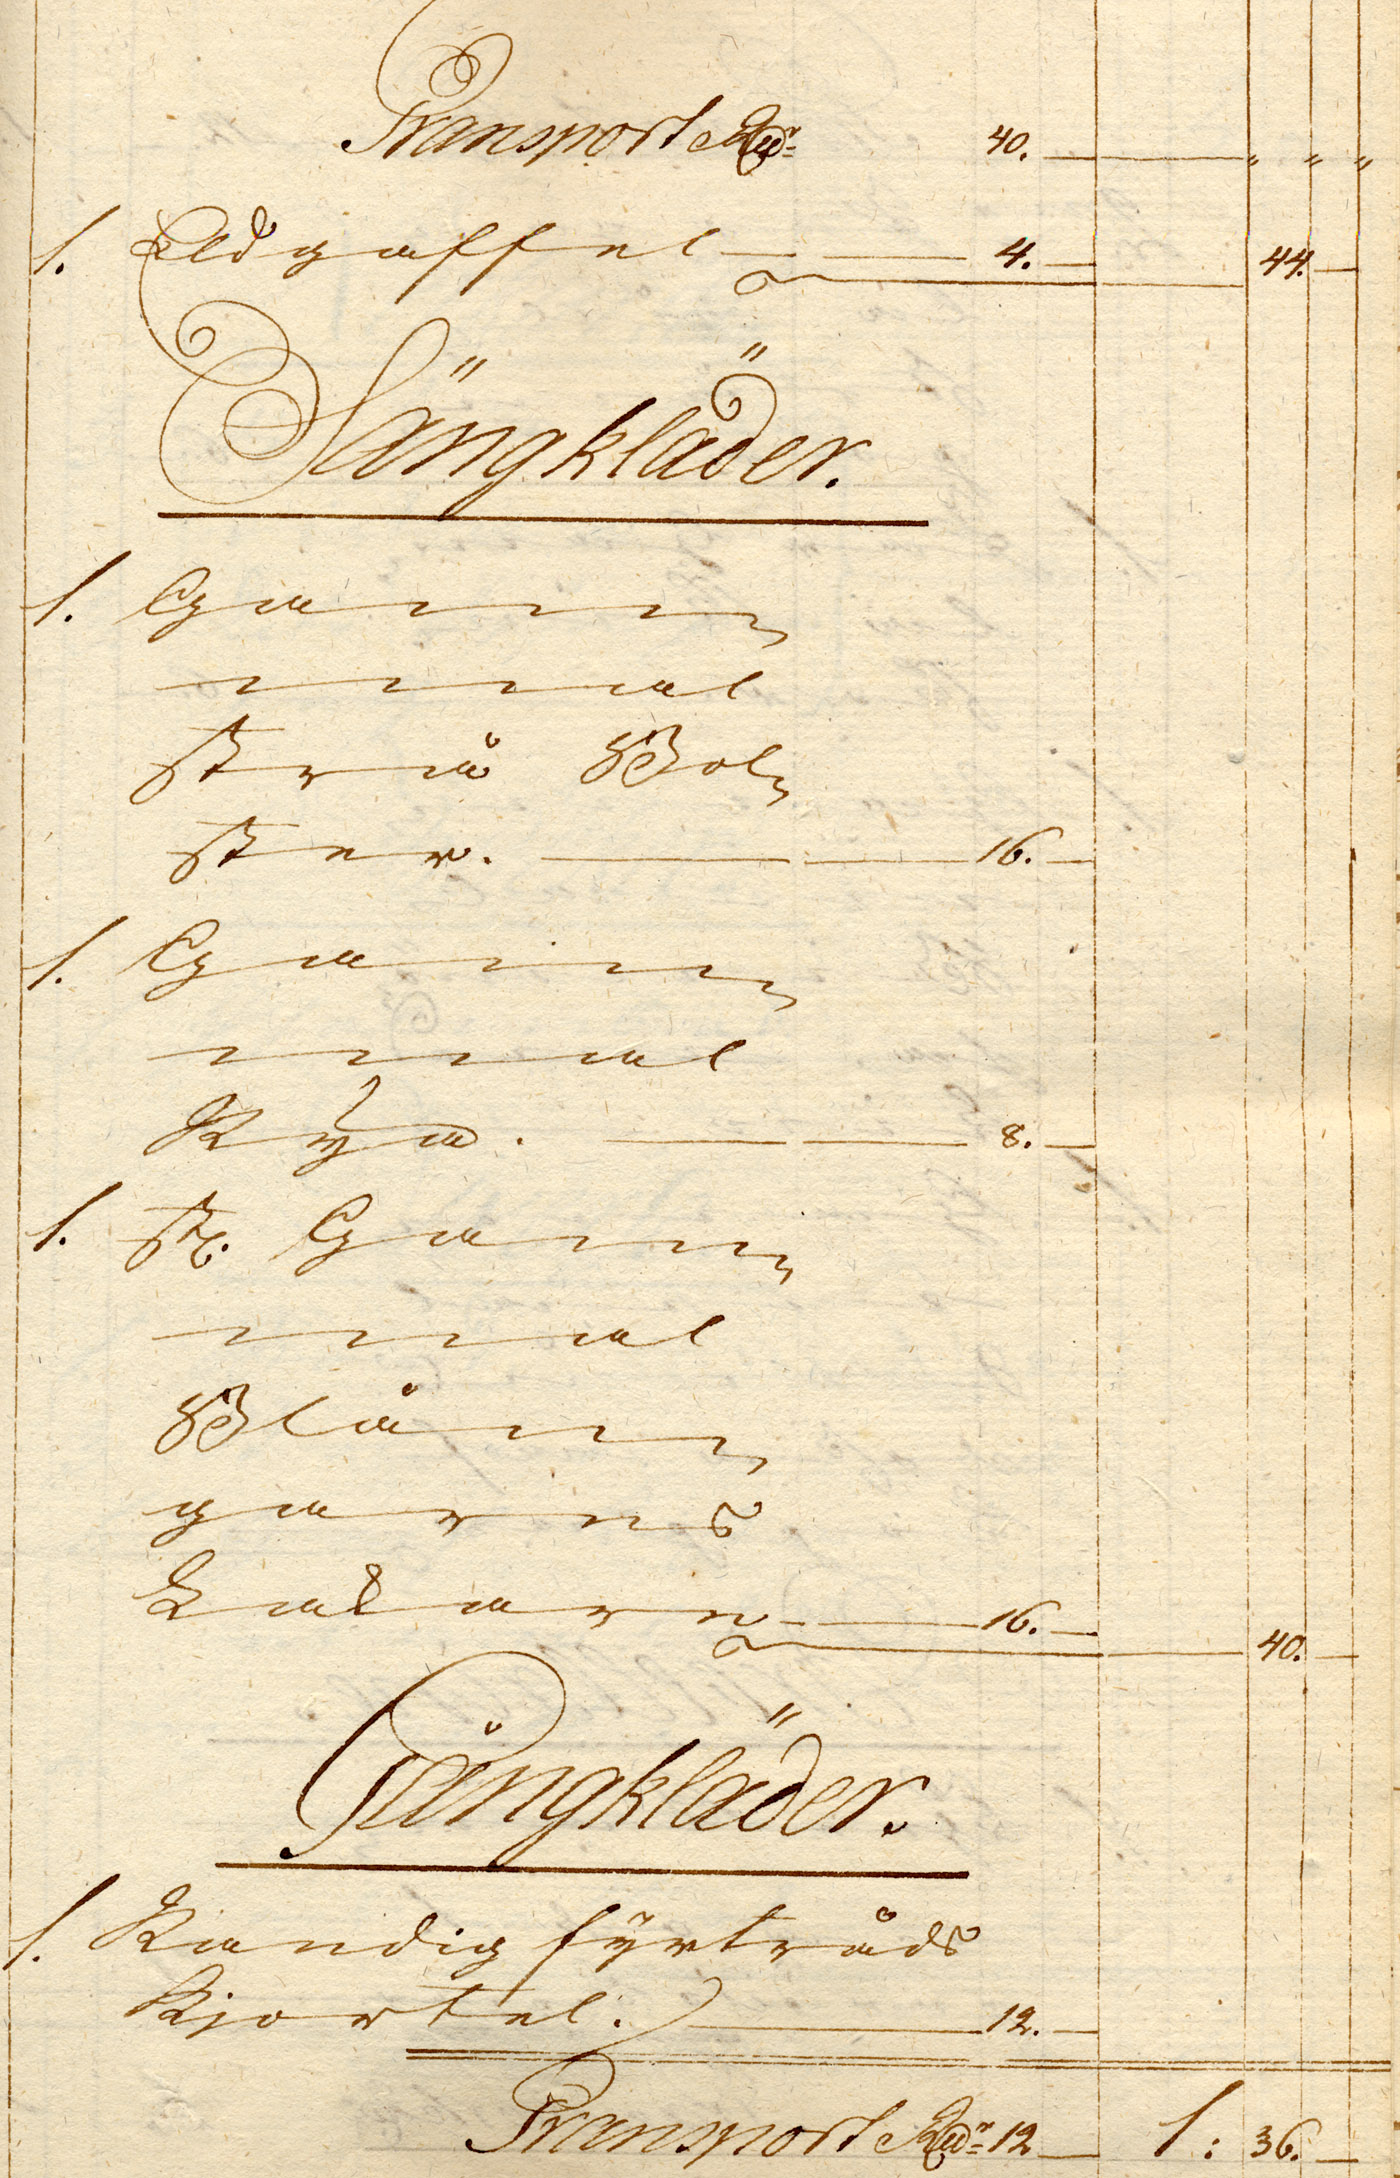 Transport Rd:r 40. — " " "
1. Eldgaffel — 4. — 44. —
Sängkläder.
1. Gamm
mal
strå Bol
ster. — 16. —
1. Gamm
mal
Rya. — 8. —
1. St. Gamm
mal
Blånn
garns
Lakan — 16. — 40. —
Gångkläder.
1. Randig fyrtråds
Kjortel. — 12. —
Transport Rd:r 12 — 1: 36. —